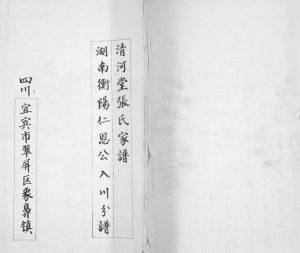 清河堂張氏家譜
湖南衡陽仁恩公入川分譜
四川宜宾市翠屏区象鼻镇